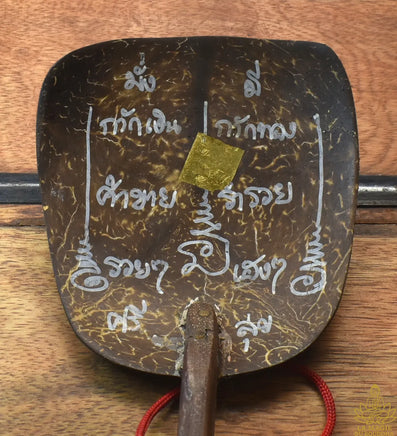 มั่ง มี
กวักเงิน กวักทอง
ค้าขาย ร่ำรวย
รวยๆ เฮงๆ
ศรี สุข